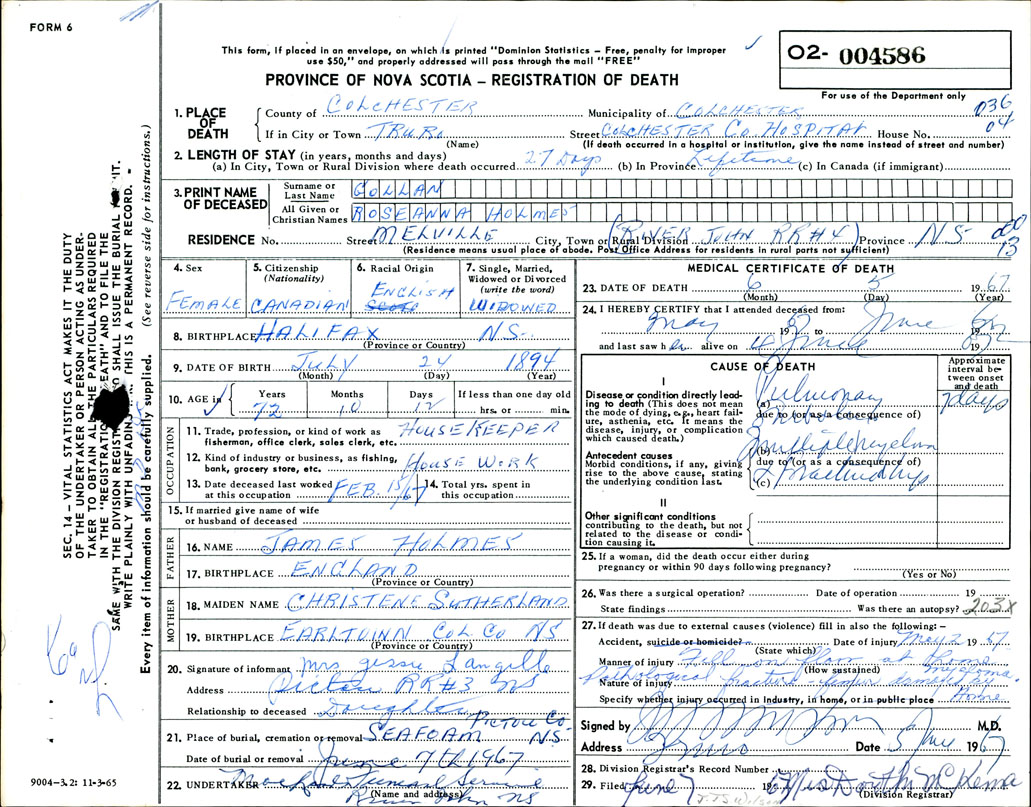 FORM 6
This form, if placed in an envelope, on which is printed "Dominion Statistics – Free, penalty for improper
use $50," and properly addressed will pass through the mail "FREE"
O2- 004586
PROVINCE OF NOVA SCOTIA – REGISTRATION OF DEATH
For use of the Department only
1. PLACE OF DEATH
County of COLCHESTER Municipality of COLCHESTER 036
If in City or Town TRURO Street COLCHESTER Co. HOSPITAL House No. 04
(Name) (If death occurred in a hospital or institution, give the name instead of street and number)
2. LENGTH OF STAY (in years, months and days)
(a) In City, Town or Rural Division where death occurred 27 Days (b) In Province Lifetime (c) In Canada (if immigrant)
3. PRINT NAME OF DECEASED
Surname or Last Name GOLLAN
All Given or Christian Names ROSEANNA HOLMES
RESIDENCE No. Street MELVILLE City, Town or Rural Division (RIVER JOHN RR#4) Province NS- 13
(Residence means usual place of abode. Post Office Address for residents in rural parts not sufficient)
4. Sex FEMALE
5. Citizenship (Nationality) CANADIAN
6. Racial Origin ENGLISH
7. Single, Married, Widowed or Divorced (write the word) WIDOWED
8. BIRTHPLACE HALIFAX NS-
(Province or Country)
9. DATE OF BIRTH July 24 1894
(Month) (Day) (Year)
10. AGE in Years Months Days If less than one day old
72 10 12 hrs. or min.
OCCUPATION
11. Trade, profession, or kind of work as fisherman, office clerk, sales clerk, etc. HOUSEKEEPER
12. Kind of industry or business, as fishing, bank, grocery store, etc. HOUSE WORK
13. Date deceased last worked at this occupation FEB. 15/67
14. Total yrs. spent in this occupation
15. If married give name of wife or husband of deceased
FATHER
16. NAME JAMES HOLMES
17. BIRTHPLACE ENGLAND
(Province or Country)
MOTHER
18. MAIDEN NAME CHRISTENE SUTHERLAND
19. BIRTHPLACE EARLTUINN COL CO NS
(Province or Country)
20. Signature of informant Mrs Jessie Langille
Address Pictou RR#3 NS
Relationship to deceased Daughter
21. Place of burial, cremation or removal SEAFOAM PICTOU CO NS-
Date of burial or removal June 7th 1967
22. UNDERTAKER Funeral Service
(Name and address) River John NS
MEDICAL CERTIFICATE OF DEATH
23. DATE OF DEATH 6 5 1967
(Month) (Day) (Year)
24. I HEREBY CERTIFY that I attended deceased from:
May 19 to June 19
and last saw her alive on 4 June 19
CAUSE OF DEATH
Approximate interval between onset and death
I
Disease or condition directly leading to death (This does not mean the mode of dying, e.g., heart failure, asthenia, etc. It means the disease, injury, or complication which caused death.)
(a) Pulmonary 7 days
due to (or as a consequence of)
Antecedent causes
Morbid conditions, if any, giving rise to the above cause, stating the underlying condition last.
(b) multiple myeloma
due to (or as a consequence of)
(c)
II
Other significant conditions
contributing to the death, but not related to the disease or condition causing it.
25. If a woman, did the death occur either during pregnancy or within 90 days following pregnancy?
(Yes or No)
26. Was there a surgical operation? Date of operation 19
State findings Was there an autopsy? 203X
27. If death was due to external causes (violence) fill in also the following: –
Accident, suicide or homicide? Date of injury May 2 1967
(State which)
Manner of injury Fell on floor at home
(How sustained)
Nature of injury Pathological fracture femur myeloma
Specify whether injury occurred in industry, in home, or in public place Home
Signed by M.D.
Address Truro Date 5 June 1967
28. Division Registrar's Record Number
29. Filed June 7 Miss Dorothy McKenna
(Division Registrar)
SEC. 14 – VITAL STATISTICS ACT MAKES IT THE DUTY
OF THE UNDERTAKER OR PERSON ACTING AS UNDER-
TAKER TO OBTAIN ALL THE PARTICULARS REQUIRED
IN THE "REGISTRATION DEATH" AND TO FILE THE
SAME WITH THE DIVISION SHALL ISSUE THE BURIAL
WRITE PLAINLY WITH UNFADING THIS IS A PERMANENT RECORD. –
Every item of information should be carefully supplied. (See reverse side for instructions.)
9004–3.2: 11-3-65